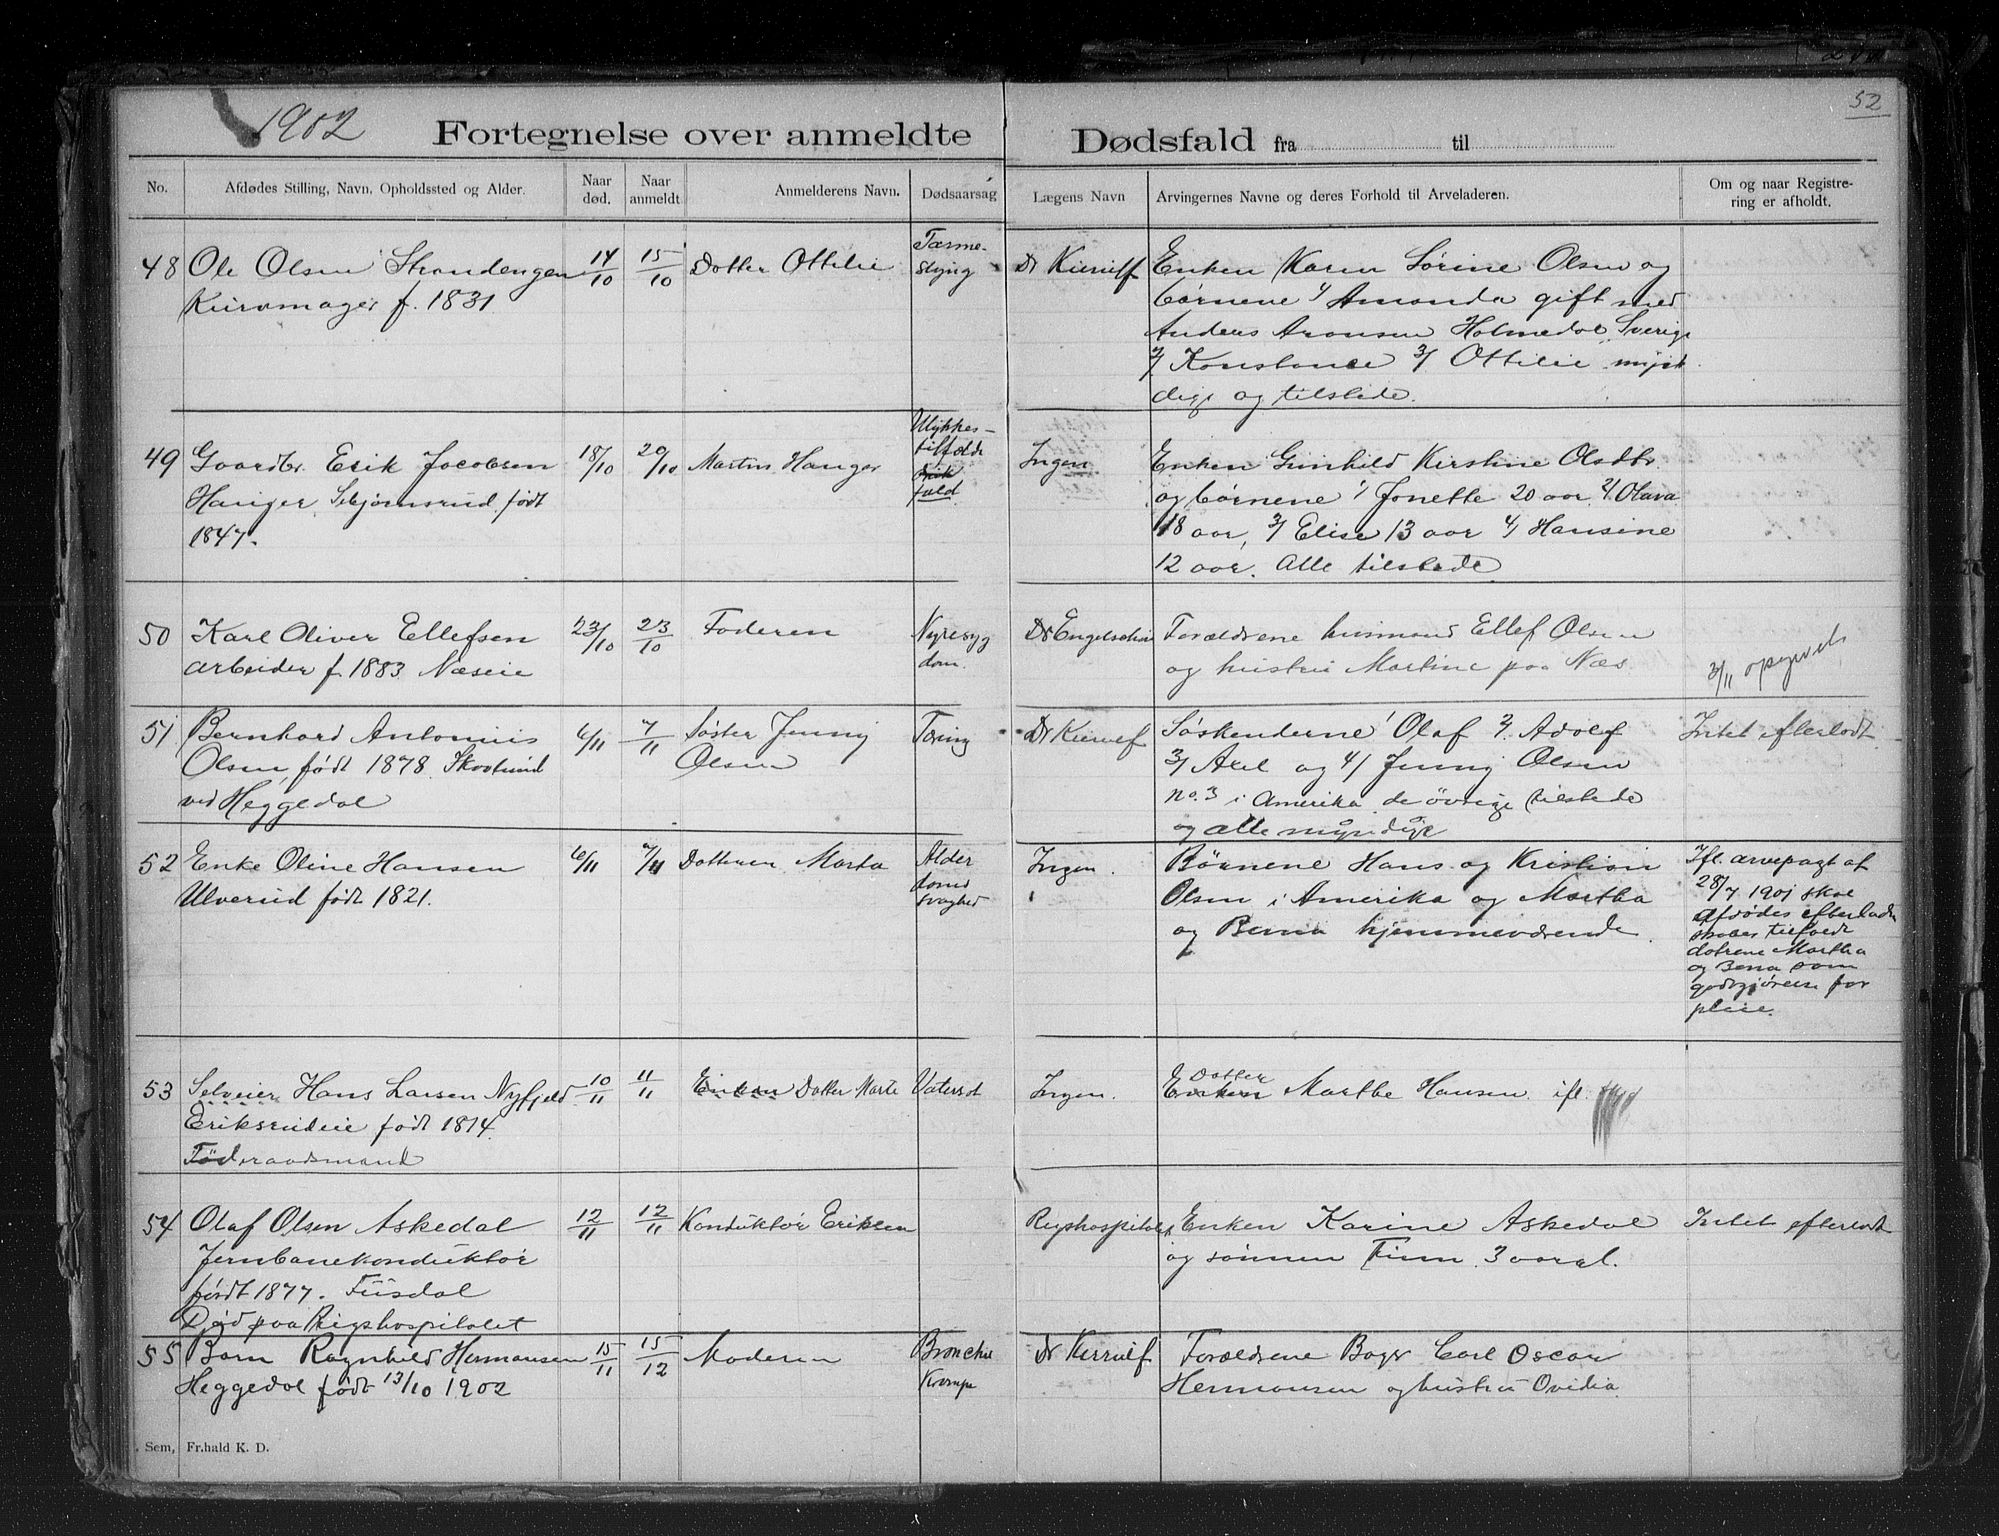 52
1902
Fortegnelse over anmeldte Dødsfald fra til
No. Afdødes Stilling, Navn, Opholdssted og Alder. Naar død. Naar anmeldt Anmelderens Navn. Dødsaarsag Lægens Navn Arvingernes Navne og deres Forhold til Arveladeren. Om og naar Registrering er afholdt.
48 Ole Olsen Strandengen
Kurvmager f. 1831
14/10
15/10
Datter Ottilie
Tarme-
slyng
Dr Kierulf
Enken Karen Sørine Olsen og
børnene 1/ Amanda gift med
Anders Aronsen Holmedal Sverige
2/ Konstance 3/ Ottilie myn
dige og tilstede.
49 Gaardbr. Erik Jacobsen
Hauger, født
1847.
18/10
20/10
Martin Hauger
Ulykkes-
tilfælde
fald
Ingen
Enken Gunhild Kirstine Olsdtr
og børnene 1/ Jonette 20 aar 2/ Olava
18 aar, 3/ Elise 13 aar 4/ Hansine
12 aar. Alle tilstede
50 Karl Oliver Ellefsen
arbeider f. 1883 Næseie
23/10
23/10
Faderen
Nyresyg
dom.
Dr Engelschiøn
Forældrene husmand Ellef Olsen
og hustru Martine paa Næs
3/11
51 Bernhard Antonius
Olsen, født 1878 Skovlund
ved Heggedal
6/11
7/11
Søster Jenny
Olsen
Tæring
Dr Kierulf
Søskenderne 1/ Olaf 2/ Adolf
3/ Axel og 4/ Jenny Olsen
no. 3 i Amerika de øvrige tilstede
og alle myndige
Intet efterladt
52 Enke Oline Hansen
Ulverud født 1821.
6/11
7/11
Datteren Marta
Alder
doms
svaghed
Ingen.
Børnene Hans og Kristian
Olsen i Amerika og Martha
og Berna hjemmeværende
Ifl. arvepagt af
28/7 1901 skal
afdødes efterladen
skabes tilfalde
døtrene Martha
og Berna som
godtgjørelse for
pleie.
53 Selveier Hans Larsen Nyfjeld
Eriksrudeie født 1814.
Føderaadsmand
10/11
11/11
Enken Datter Marte
Vatersot
Ingen.
Datter
Enken Marthe Hansen ifl.
54 Olaf Olsen Askedal
Jernbanekonduktør
født 1877. Fusdal
Død paa Rigshospitalet
12/11
12/11
Konduktør Eriksen
Rigshospitalet
Enken Karine Askedal
og sønnen Finn 3 aar gl.
Intet efterladt
55 Barn Ragnhild Hermansen
Heggedal født 13/10 1902
15/11
15/12
Moderen
Bronchie
Krampe
Dr Kierulf
Forældrene Bager Carl Oscar
Hermansen og hustru Ovidia
. Sem, Fr.hald K. D.